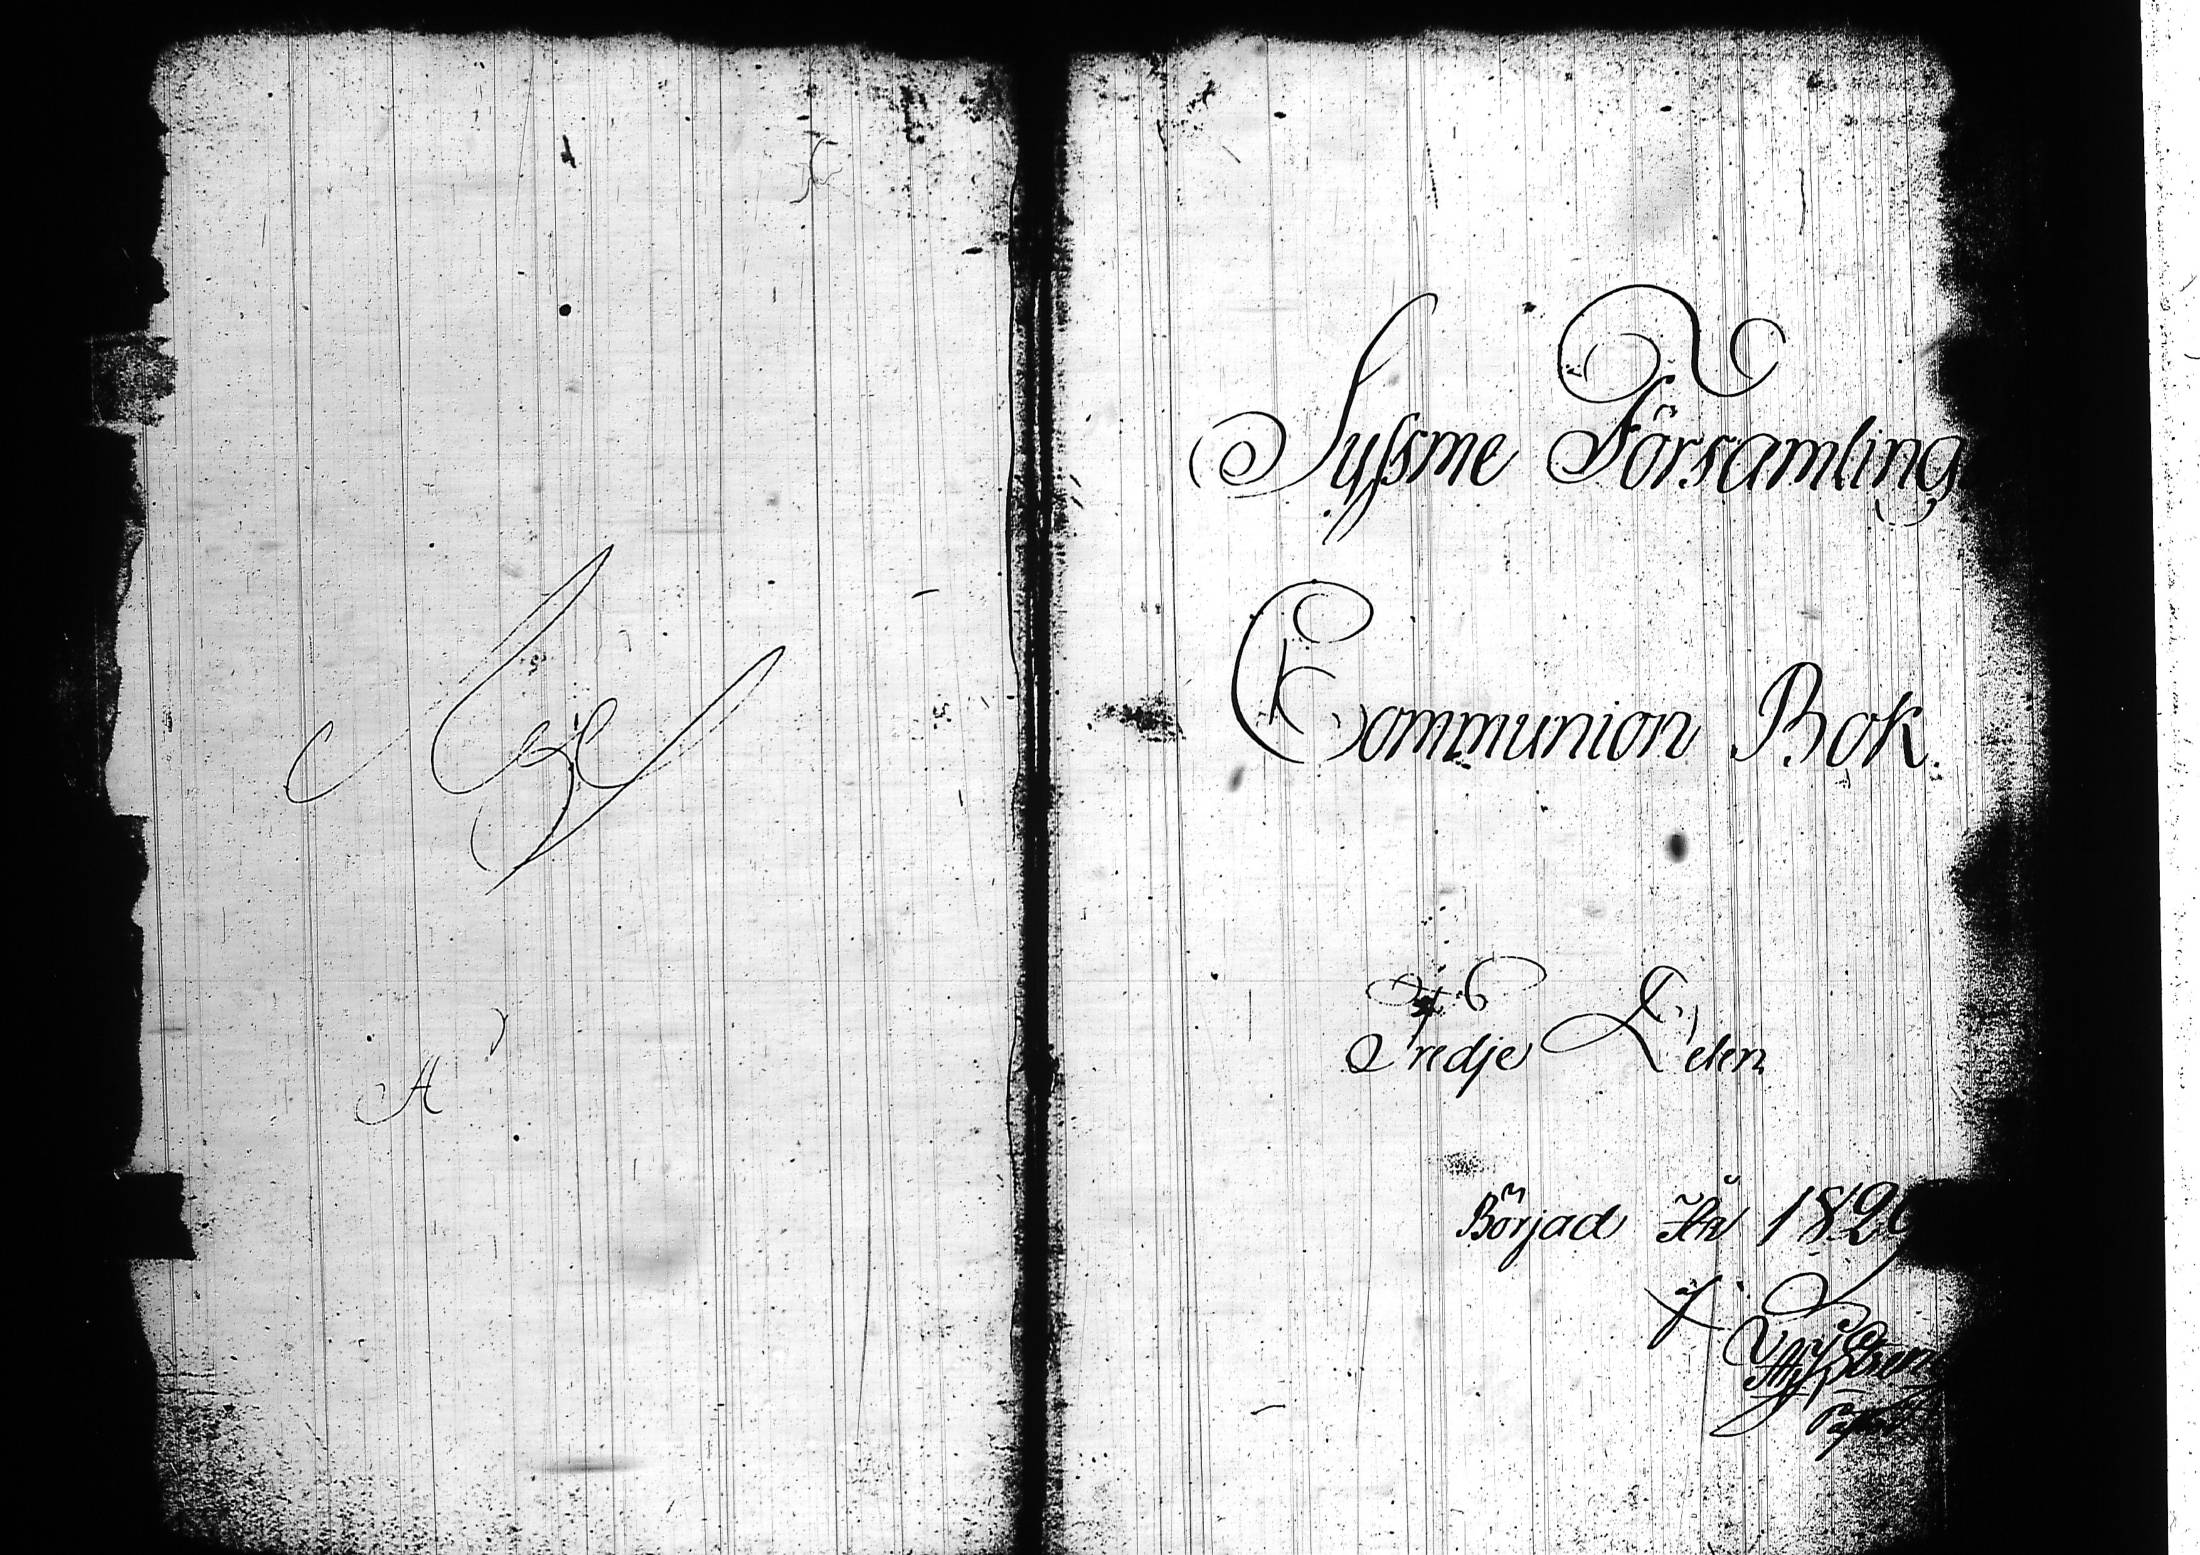 A
Syssme Församling
Communion Bok.
Tredje Delen
Börjad År 1829
af